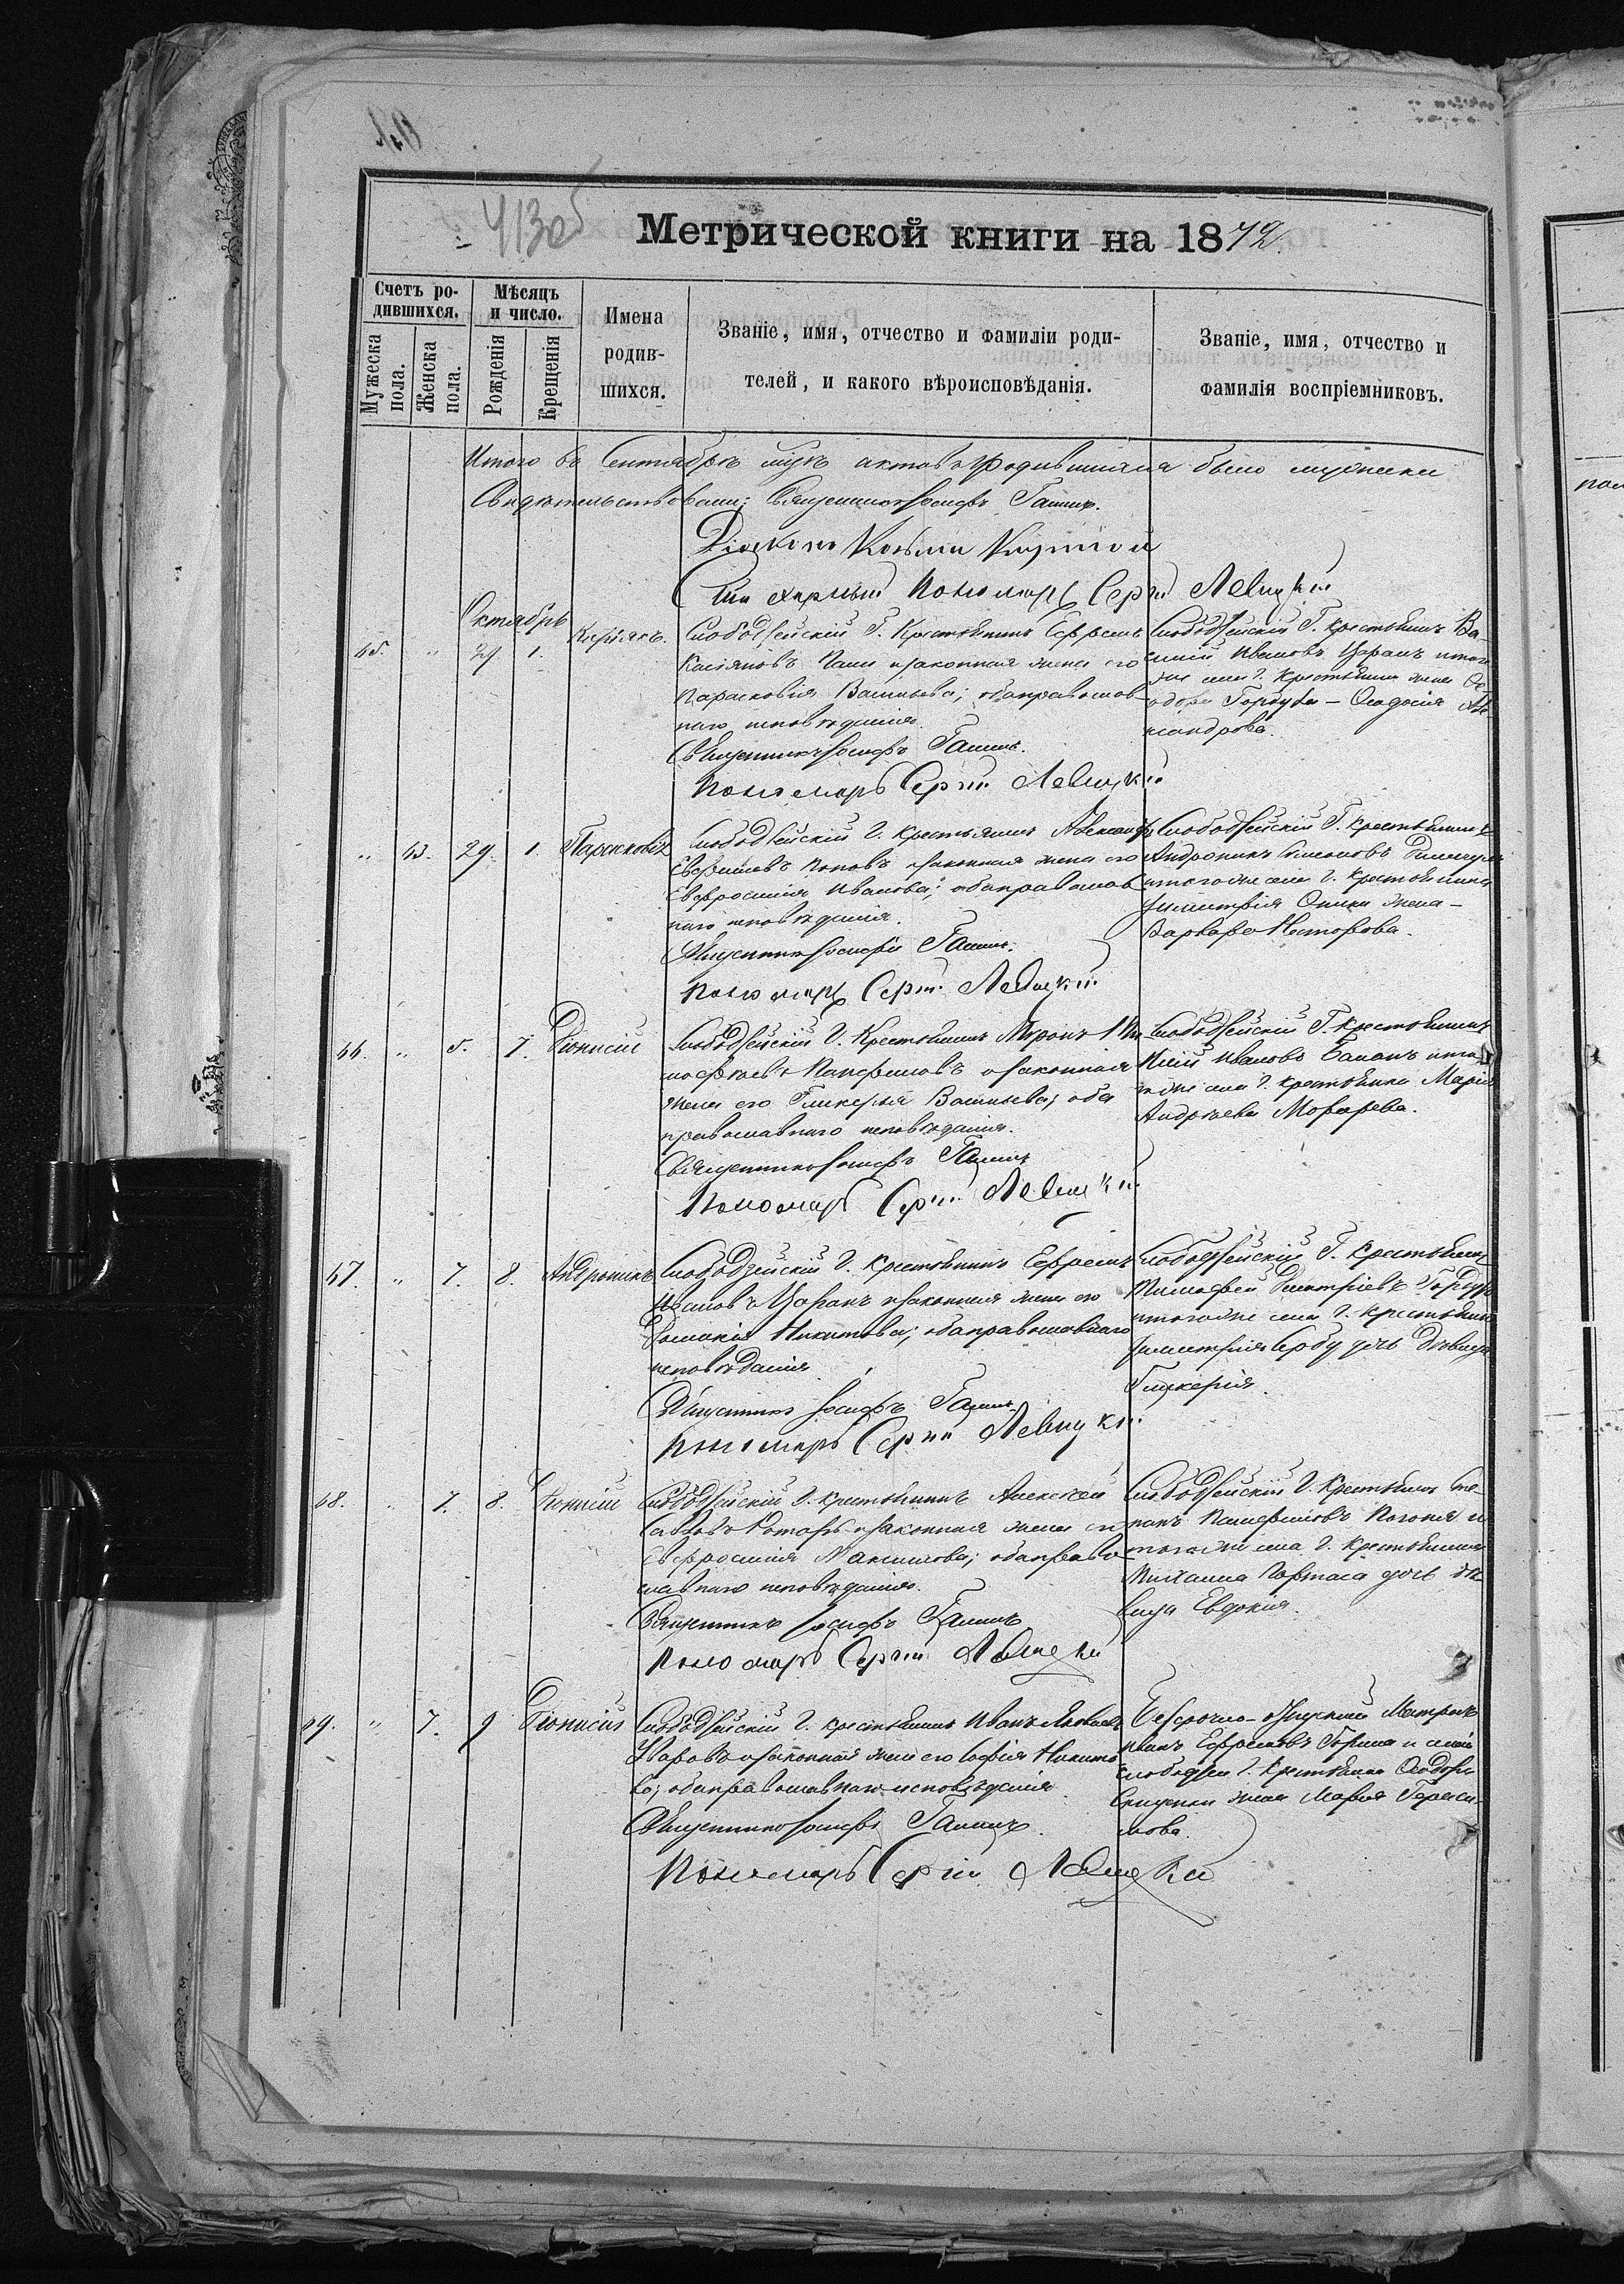 413об
Метрической книги на 1872.
Счетъ ро-
дившихся.
Мужеска
пола.
Женска
пола.
Мѣсяцъ
и число.
Рожденія
Крещенія
Имена
родив-
шихся.
Званіе, имя, отчество и фамиліи роди-
телей, и какого вѣроисповѣданія.
Званіе, имя, отчество и
фамилія воспріемниковъ.
Итого въ Сентябрѣ было
Свидѣтельствовали: Священникъ Іосифъ
Діаконъ Козьма
Пономарь Сергій Левицкій
Октябрь
65. " 29 1.
Слободзейскій Г. Крестьянинъ Ефремъ
Касіяновъ и законная жена его
Парасковія Васильева; оба православ-
наго исповѣданія.
Священникъ Іосифъ
Пономарь Сергій Левицкій
Слободзейскій Г. крестьянинъ Ва-
силій Ивановъ Царанъ и того
же села Г. Крестьянина жена Ѳе-
одора Горбуза — Ѳеодосія Але-
ксандрова.
" 63. 29. 1. Парасковія
Слободзейскій Г. крестьянинъ Александръ
Евфимовъ Поповъ и законная жена его
Евфросинія Иванова; оба православ-
наго исповѣданія.
Священникъ Іосифъ
Пономарь Сергій Левицкій
Слободзейскій Г. Крестьянинъ
Андроникъ Симеоновъ
и того же села Г. Крестьянина
Димитрія жена —
Варвара Несторова.
66. " 5. 7. Діонисій
Слободзейскій Г. Крестьянинъ Миронъ Ти-
моѳеевъ Памфиловъ и законная
жена его Гликерія Васильева; оба
православнаго исповѣданія.
Священникъ Іосифъ
Пономарь Сергій Левицкій
Слободзейскій Г. Крестьянинъ
Ивановъ Баланъ и того
же села Г. крестьянка Марія
Андреева Морарева.
67. " 7. 8. Андроникъ
Слободзейскій Г. Крестьянинъ Ефремъ
Ивановъ Царанъ и законная жена его
Домникія Никитова; оба православнаго
исповѣданія.
Священникъ Іосифъ
Пономарь Сергій Левицкій
Слободзейскій Г. Крестьянинъ
Тимоѳей Димитріевъ
и того же села Г. Крестьянина
Димитрія Сербу дочь дѣвица
Гликерія.
68. " 7. 8. Діонисій
Слободзейскій Г. крестьянинъ Алексѣй
Саввовъ Ротарь и законная жена его
Евфросинія Максимова; оба право-
славнаго исповѣданія.
Священникъ Іосифъ
Пономарь Сергій Левицкій
Слободзейскій Г. Крестьянинъ Сте-
фанъ Памфиловъ и
того же села Г. Крестьянина
Михаила дочь дѣ-
вица Евдокія.
69. " 7. 9 Діонисій
Слободзейскій Г. крестьянинъ Иванъ Яковлевъ
Уваровъ и законная жена его Софія Никито-
ва; оба православнаго исповѣданія
Священникъ Іосифъ
Пономарь Сергій Левицкій
Безсрочно-отпускной Митро-
фанъ Ефремовъ и села
Слободзеи Г. Крестьянина Ѳеодора
жена Марія Гераси-
мова.